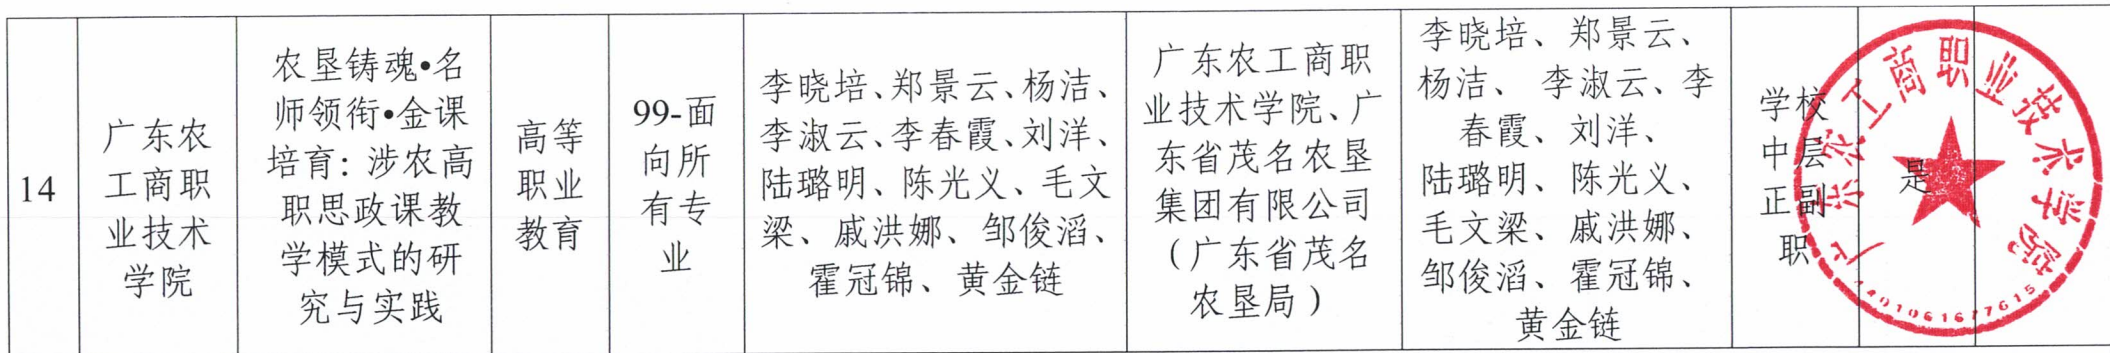 14
广东农
工商职
业技术
学院
农垦铸魂•名
师领衔•金课
培育：涉农高
职思政课教
学模式的研
究与实践
高等
职业
教育
99-面
向所
有专
业
李晓培、郑景云、杨洁、
李淑云、李春霞、刘洋、
陆璐明、陈光义、毛文
梁、戚洪娜、邹俊滔、
霍冠锦、黄金链
广东农工商职
业技术学院、广
东省茂名农垦
集团有限公司
（广东省茂名
农垦局）
李晓培、郑景云、
杨洁、李淑云、李
春霞、刘洋、
陆璐明、陈光义、
毛文梁、戚洪娜、
邹俊滔、霍冠锦、
黄金链
学校
中层
正副
职
是
广东农工商职业技术学院